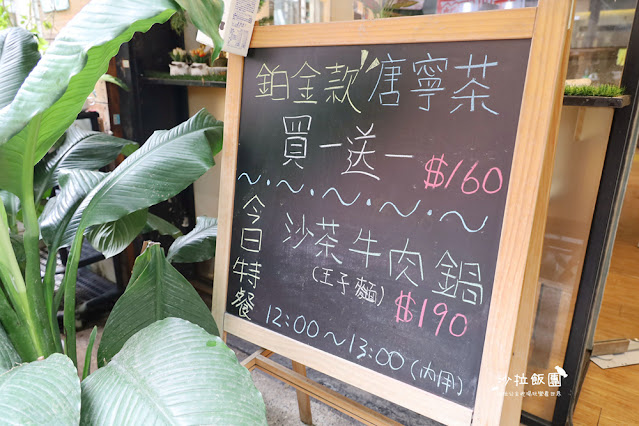 鉑金款唐寧茶
買一送一 $160
今日特餐
沙茶牛肉鍋
(王子麵) $190
12:00～13:00 (內用)
沙拉飯團